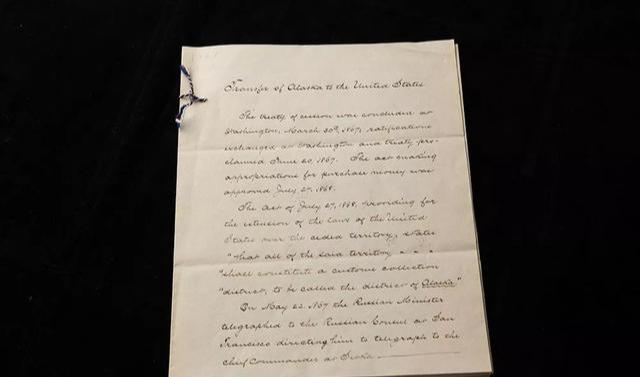 Transfer of Alaska to the United States
The treaty of cession was concluded at
Washington, March 30th, 1867; ratifications
exchanged at Washington and treaty pro-
claimed June 20, 1867. The act making
appropriations for purchase money was
approved July 27, 1868.
The Act of July 27, 1868, providing for
the extension of the laws of the United
States over the ceded territory, states
"that all of the said territory . . .
"shall constitute a customs collection
"district, to be called the district of Alaska"
On May 22, 1867 the Russian Minister
telegraphed to the Russian Consul at San
Francisco directing him to telegraph to the
Chief Commander at Sitka